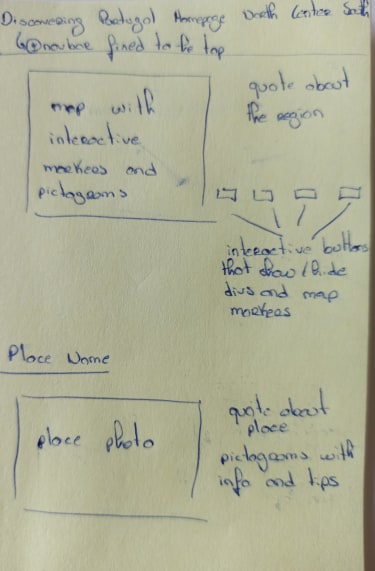 Discovering Portugal Homepage North Center South
navbar fixed to the top
map with
interactive
markers and
pictagrams
quote about
the region
interactive buttons
that show/hide
divs and map
markers
Place Name
place photo
quote about
place
pictagrams with
info and tips